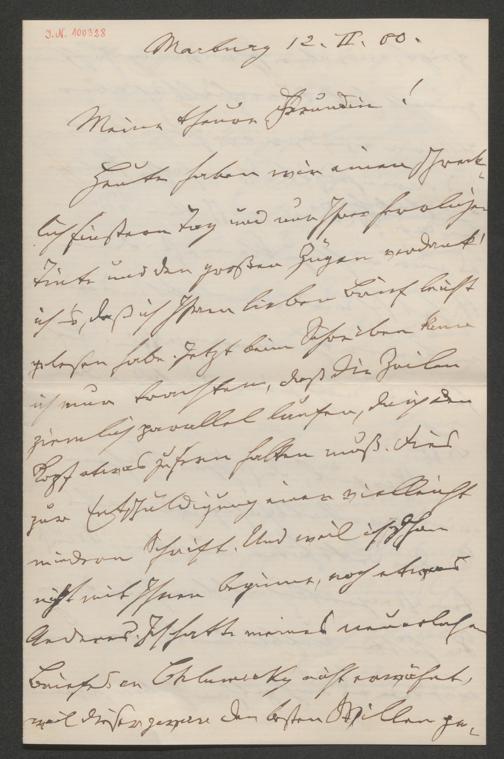 J.N. 100938
Marburg 12. II. 80.
Meine theure Freundin!
Heute haben wir einen schreck-
lich finstern Tag und nur Ihrer herrlichen
Tinte und den großen Zügen verdank'
ich's, daß ich Ihren lieben Brief leicht
gelesen habe. Jetzt beim Schreiben kann
ich nur trachten, daß die Zeilen
ziemlich parallel laufen, da ich den
Kopf etwas zu fern halten muß. Dies
zur Entschuldigung einer vielleicht
mindern Schrift. Und weil ich schon
nicht mit Ihnen beginne, noch etwas
Anderes. Ich hatte meines neuerlichen
Briefes an Chlumecky nicht erwähnt,
weil dieser gewiss den besten Willen ge-